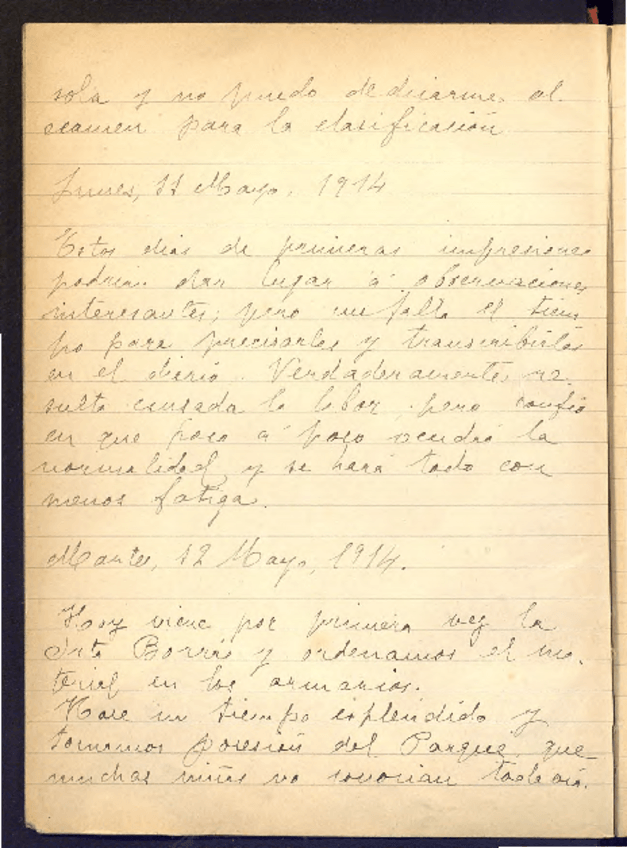 sola y no puedo dedicarme al
examen para la clasificación
Lunes, 11 Mayo, 1914
Estos dias de primeras impresiones
podrian dar lugar á observaciones
interesantes; pero me falta el tiem
po para precisarlas y transcribirlas
en el diario. Verdaderamente, re
sulta cansada la labor, pero confio
en que poco á poco vendrá la
normalidad y se hará todo con
menos fatiga.
Martes, 12 Mayo, 1914.
Hoy viene por primera vez la
Srta Borrás y ordenamos el ma-
terial en los armarios.
Hace un tiempo esplendido y
tomamos posesión del Parque que
muchas niñas no conocian todavia.